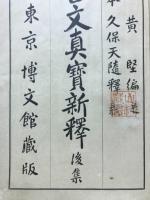 黄堅編
久保天隨釋
文真寶新釋後集
東京博文館藏版